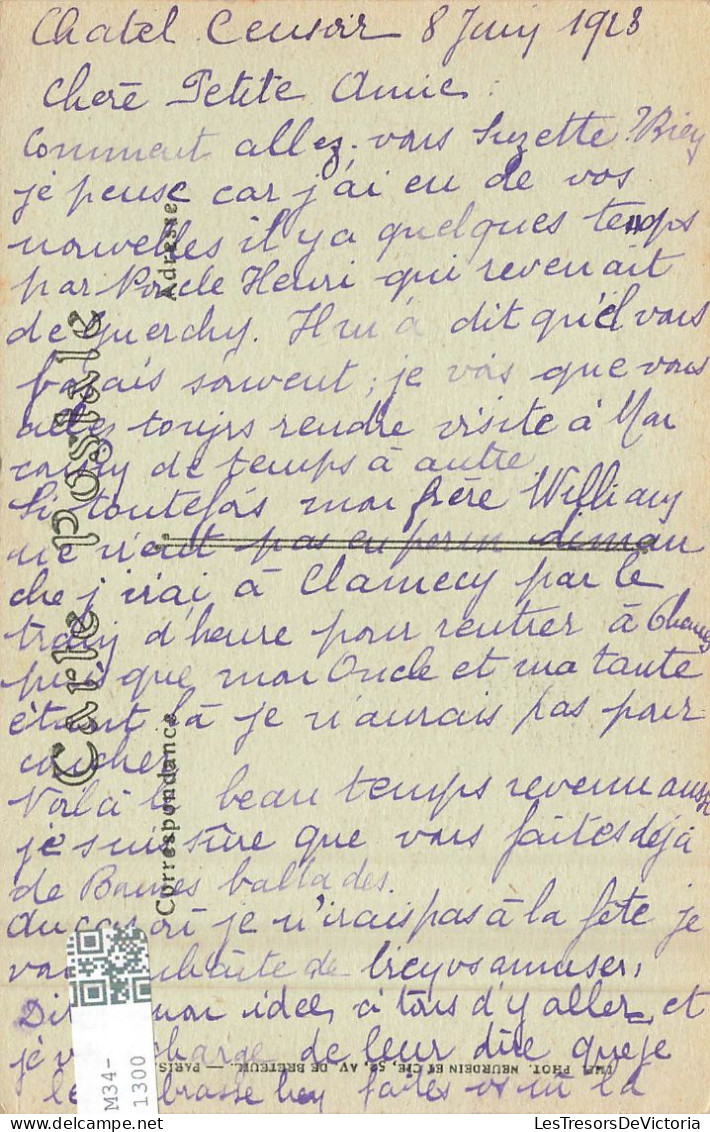 Chatel Censoir 8 Juin 1923
Chere Petite Amie :
Comment allez-vous Suzette? Bien
je pense car j'ai eu de vos
nouvelles il y a quelques temps
par l'oncle Henri qui revenait
de Guerchy. Il m'a dit qu'il vous
voyais souvent ; je vois que vous
allez toujrs rendre visite à Mon
cousin de temps à autre
Si toutefois mon frère William
ne vient pas en perm diman
che j'irai à Clamecy par le
train d'heure pour rentrer à
puis que mon Oncle et ma tante
étant là je n'aurais pas pour
coucher
Voilà le beau temps revenu aussi
je suis sûre que vous faites déjà
de Bonnes ballades.
Au cas où je n'irais pas à la fête je
vous souhaite de bien vs amuser,
Dites mon idée à tous d'y aller et
je vs charge de leur dire que je
les embrasse bien faites vs un la
Carte Postale
Correspondance
Adresse
IMP. PHOT. NEURDEIN ET CIE, 52, AV. DE BRETEUIL. — PARIS.
M34-
1300
LesTresorsDeVictoria